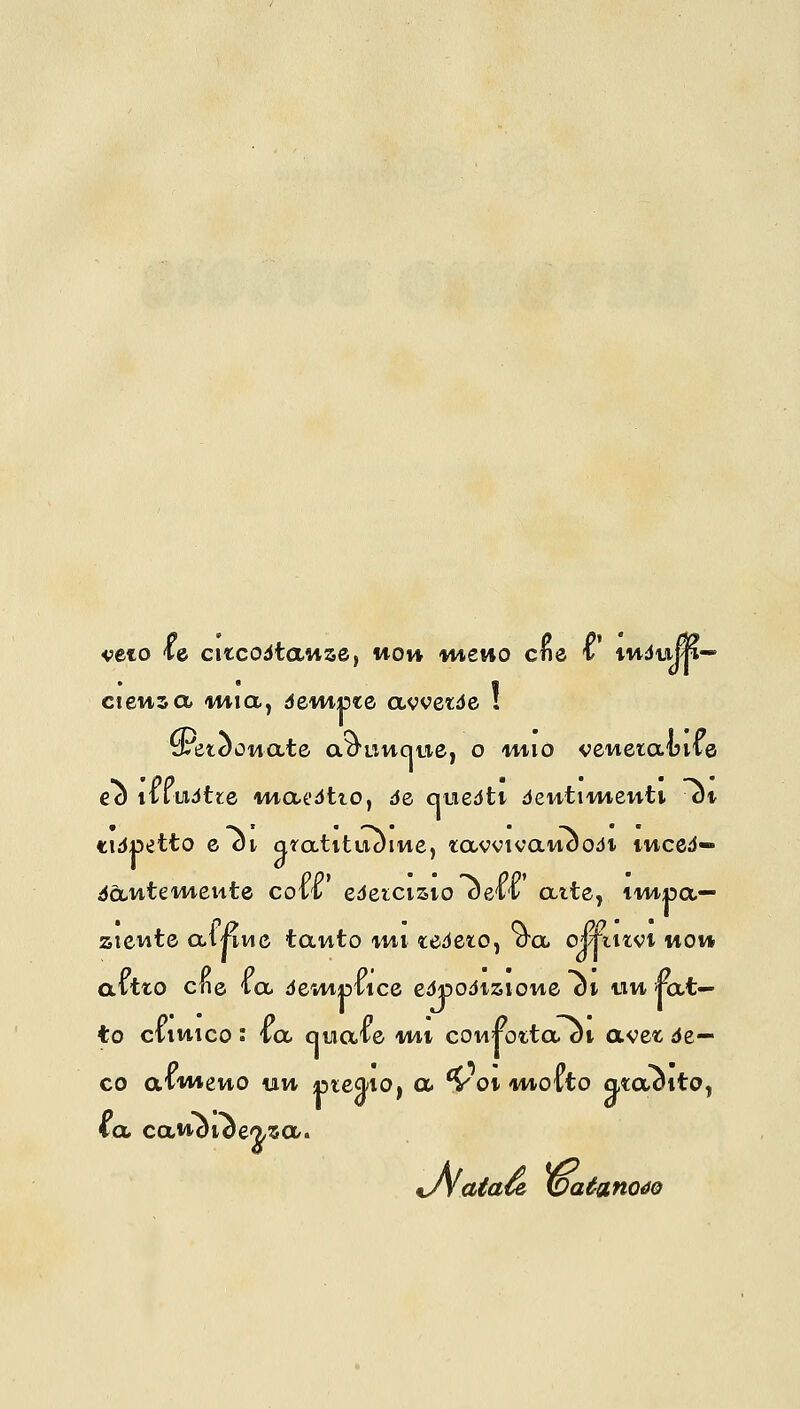 vero le circostanze, non meno che l' insuffi-
cienza mia, sempre avverse !
Perdonate adunque, o mio venerabile
ed illustre maestro, se questi sentimenti di
rispetto e di gratitudine, ravvivandosi inces-
santemente coll' esercizio dell' arte, impa-
ziente alfine tanto mi resero, da offrirvi non
altro che la semplice esposizione di un fat-
to clinico: la quale mi conforta di aver se-
co almeno un pregio, a Voi molto gradito,
la candidezza.
Natale Catanoso